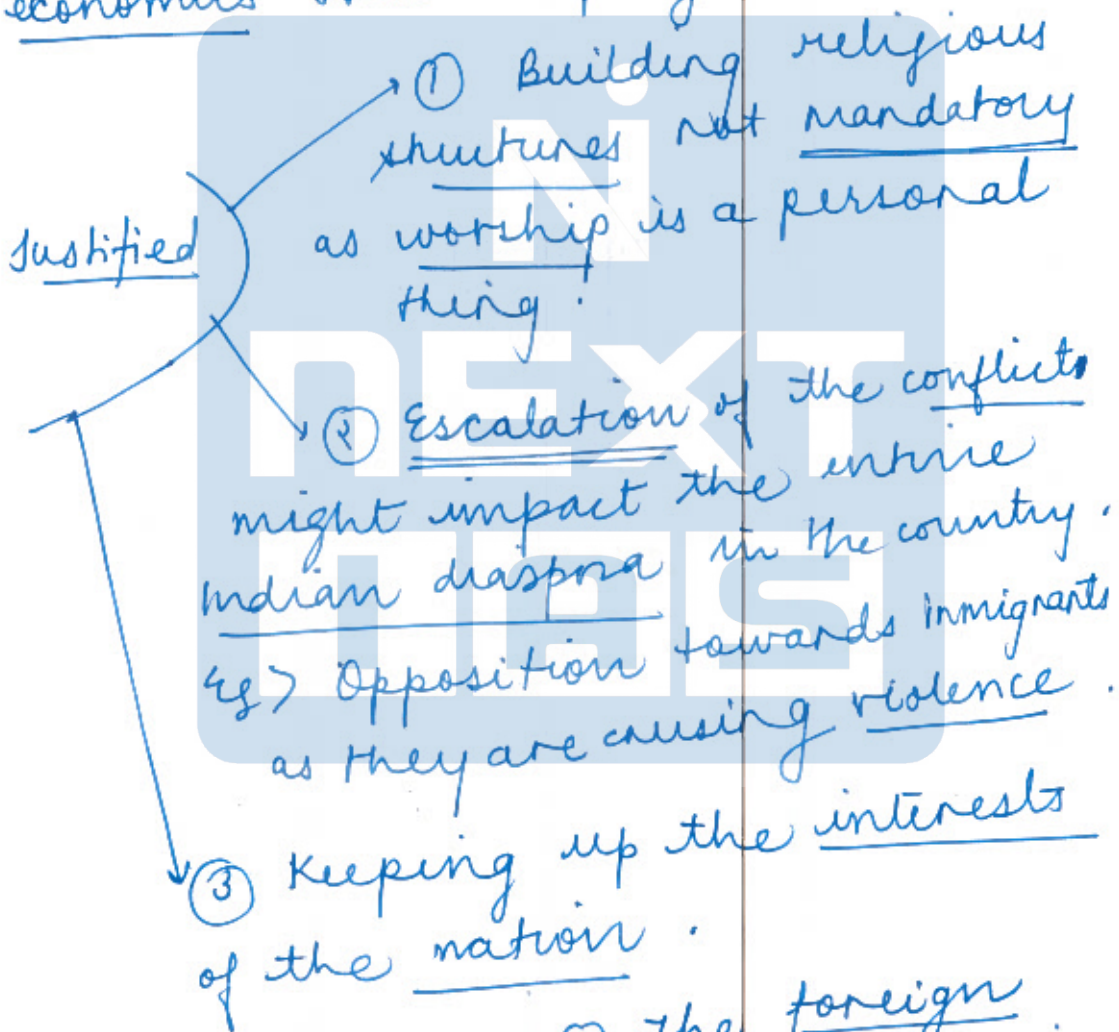 economics
① Building religious
structures not mandatory
as worship is a personal
thing.
Justified
② Escalation of the conflicts
might impact the entire
Indian diaspora in the country.
Eg > Opposition towards inmigrants
as they are causing violence.
③ Keeping up the interests
of the nation.
the foreign
NEXT
IAS